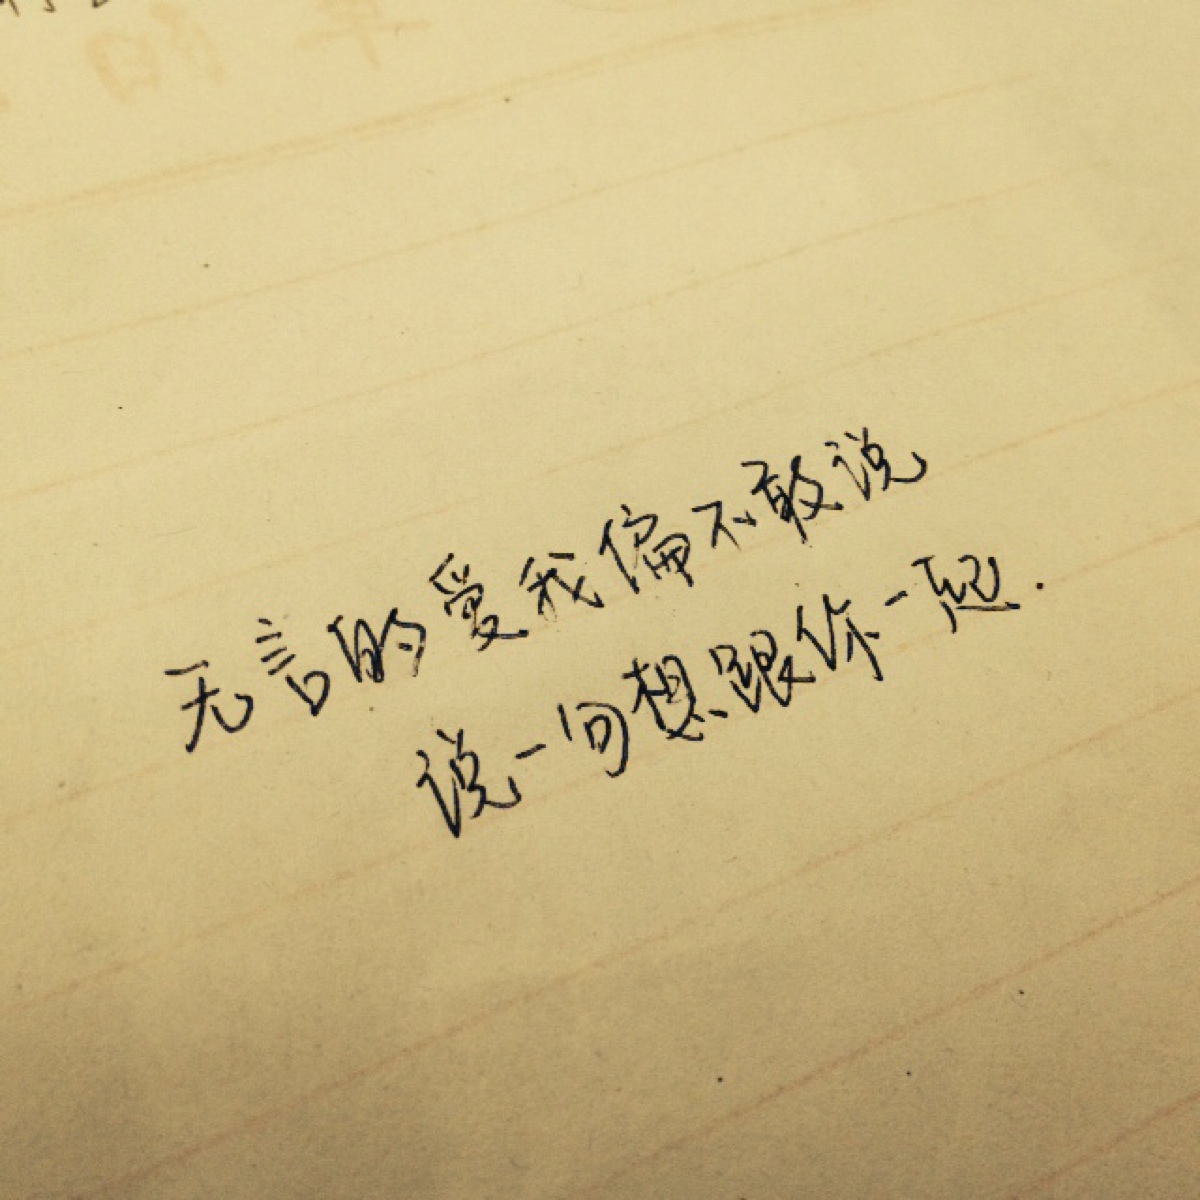 无言的爱我偏不敢说
说一句想跟你一起.